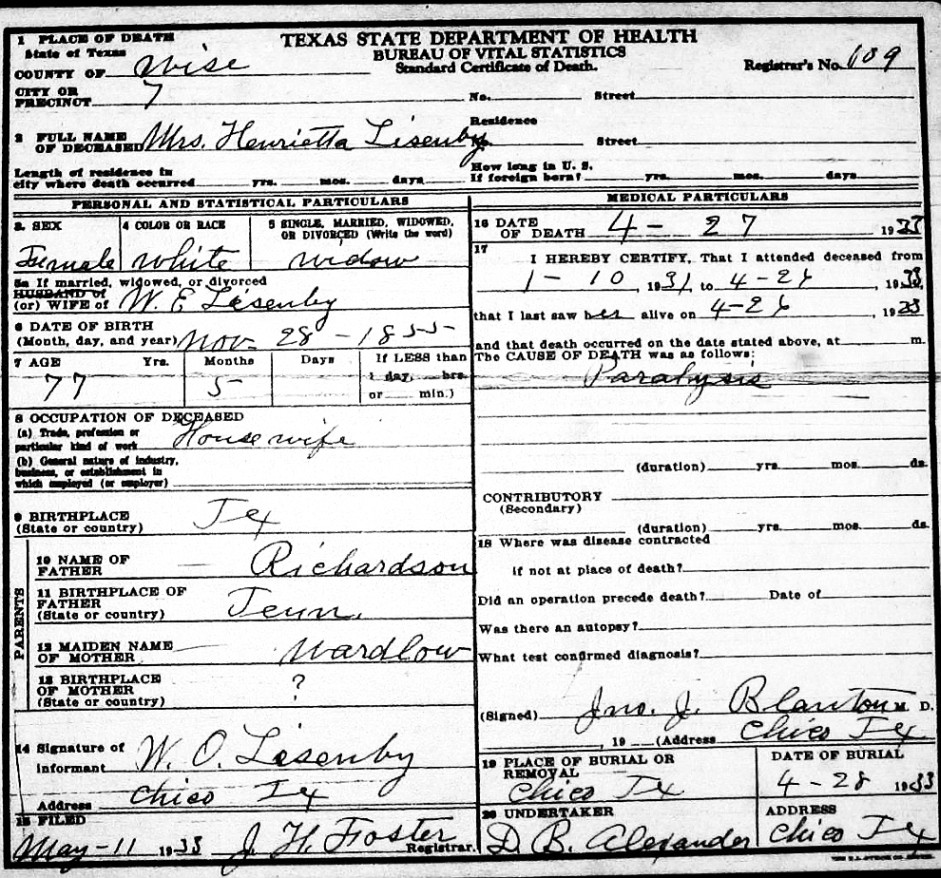 TEXAS STATE DEPARTMENT OF HEALTH
BUREAU OF VITAL STATISTICS
Standard Certificate of Death.
Registrar's No. 109
1 PLACE OF DEATH
State of Texas
COUNTY OF Wise
CITY OR PRECINCT 7 No. Street
2 FULL NAME OF DECEASED Mrs. Henrietta Lisenby
Residence No. Street
Length of residence in city where death occurred yrs. mos. days
How long in U. S. If foreign born? yrs. mos. days
PERSONAL AND STATISTICAL PARTICULARS
3. SEX Female
4 COLOR OR RACE white
5 SINGLE, MARRIED, WIDOWED, OR DIVORCED (Write the word) widow
5a If married, widowed, or divorced
HUSBAND of
(or) WIFE of W. E Lisenby
6 DATE OF BIRTH
(Month, day, and year) Nov. 28 - 1855
7 AGE Yrs. Months Days If LESS than
77 5 1 day, hrs.
or min.)
8 OCCUPATION OF DECEASED
(a) Trade, profession or
particular kind of work House wife
(b) General nature of industry,
business, or establishment in
which employed (or employer)
9 BIRTHPLACE
(State or country) Tex
PARENTS
10 NAME OF FATHER — Richardson
11 BIRTHPLACE OF FATHER
(State or country) Tenn.
12 MAIDEN NAME OF MOTHER Wardlow
13 BIRTHPLACE OF MOTHER
(State or country) ?
14 Signature of Informant W. O. Lisenby
Address Chico Tex
15 FILED
May-11 1933 J. H. Foster Registrar.
MEDICAL PARTICULARS
16 DATE OF DEATH 4 - 27 1933
17
I HEREBY CERTIFY, That I attended deceased from
1 - 10, 1931, to 4-26, 1933,
that I last saw her alive on 4-26, 1933
and that death occurred on the date stated above, at m.
The CAUSE OF DEATH was as follows:
Paralysis
(duration) yrs. mos. ds.
CONTRIBUTORY
(Secondary)
(duration) yrs. mos. ds.
18 Where was disease contracted
if not at place of death?
Did an operation precede death? Date of
Was there an autopsy?
What test confirmed diagnosis?
(Signed) Jno. J. Blanton M. D.
, 19 (Address Chico Tex
19 PLACE OF BURIAL OR REMOVAL
Chico Tex
DATE OF BURIAL
4 - 28 1933
20 UNDERTAKER
D. B. Alexander
ADDRESS
Chico Tex